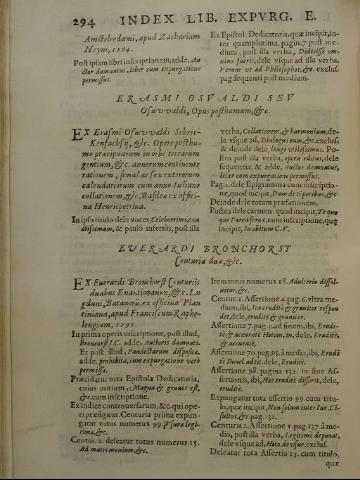 294 INDEX LIB. EXPVRG. E.
Amstelredami, apud Zachariam
Heyns, 1594.
Post ipsam libri inscriptionem, adde, Au-
ctor damnatus, liber cum expurgatione
permissus.
Ex Epistol. Dedicatoria, quæ incipit, in-
ter quamplurima, pagin. 7. post me-
dium, post illa verba,
fueris, dele vsque ad illa verba,
Verum vt ad Philosophos, &c. exclus.
pag. sequenti post medium.
ERASMI OSVVALDI SEV
Osuvvaldi, Opus posthumum, &c.
EX Erasmi Osuvvaldi Schrec-
Kenfuchsij, &c. Opere posthu-
mo præcipuarum in orbe terrarum
gentium, &c. annorum continente
rationem, simul ac sex exterorum
calendariorum cum anno Iuliano
collationem, &c. Basileæ ex offici-
na Henricpetrina.
In ipso titulo dele voces, Celeberrimi,
ctissimum, & paulò inferiùs, post illa
verba, Collationem, & harmoniam, de-
le vsque ad, Dialogus eum, &c. exclus.
& deinde dele, longè vtilissimus. Po-
stea post illa verba, opera
sequentia, & adde, Auctor damnatus,
liber cum expurgatione permissus.
Pag. 2. dele Epigramma cum inscriptio-
ne, quod incipit,
Deinde dele totam præfationem.
Postea dele carmen, quod incipit, Te quo
que Parca ferox, cum inscriptione, quæ
incipit, In obitum C. V.
EVERARDI BRONCHORST
Centuriæ duæ, &c.
EX Euerardi Bronchorst Centurijs
duabus Εναντιοφανῶν, &c. Lu-
gduni, Batauorũ, ex officina Plan
tiniana, apud Franciscum Raphe-
lengium, 1595.
In prima operis inscriptione, post illud,
Broncorst I.C. adde, Auctoris damnati.
Et post illud, Pandectarum disposita,
adde, prohibita, cum expurgatione verò
permissa.
Præcidatur tota Epistola Dedicatoria,
cuius initium, Magna & grauis est,
&c. cum inscriptione.
Ex indice controuersiarum, &c. qui ope-
ri præfigitur. Centuria prima expun-
gatur totus numerus 99. Vsura legi-
tima, &c.
Centur. 2. deleatur totus numerus 15.
Ad matrimonium, &c.
Item totus numerus 18. Adulterio dissol-
uitur, &c.
Centur. 1. Assertione 4. pag. 6. vltra me-
dium, ibi, Ita eruditè & grauiter respon-
det, dele, eruditè & grauiter.
Assertione 7. pag. ad finem, ibi, Erudi-
tè & accuratè Hotom. in dele, Eruditè,
& accuratè.
Assertione 70. pag. 95. à medio, ibi, Erudi-
tè Donel. addit. dele, Eruditè.
Assertione 98. pagina 132. in fine As-
sertionis, ibi, Hæc eruditè disserit, dele,
eruditè.
Expungatur tota assertio 99. cum titu-
lo, quæ incipit, Non solum inter Iur. Cõ-
sultos, &c. pag. 132.
Centuria 2. Assertione 1. pag. 137. à me-
dio, postilla verba, Legitimè deputat,
dele vsque ad, &c. exclus.
Deleatur tota Assertio 15. cum titulo,
quæ